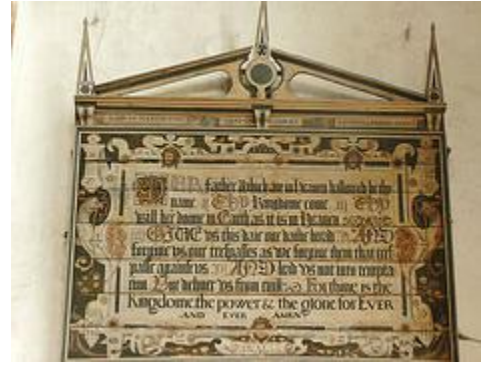 OUR father which are in heaven hallowed be thy
name Thy Kingdome come Thy
will bee donne in Earth as it is in Heaven
GIUE vs this daie our dailie bread AND
forgiue vs our trespasses as we forgiue them that tres
passe against vs AND leed vs not into tempta
tion But deliuer vs from euill For thine is the
Kingdome the power & the glorie for EVER
AND EVER AMEN